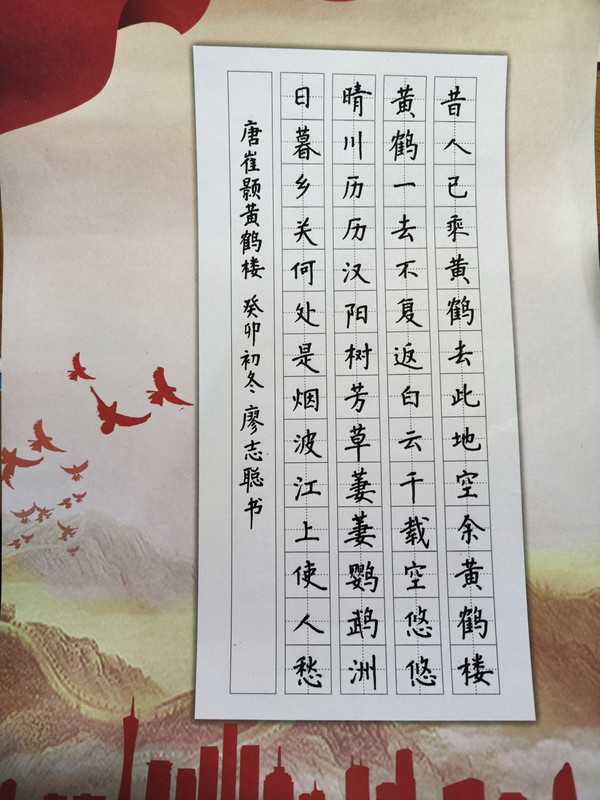 昔人已乘黄鹤去此地空余黄鹤楼
黄鹤一去不复返白云千载空悠悠
晴川历历汉阳树芳草萋萋鹦鹉洲
日暮乡关何处是烟波江上使人愁
唐崔颢黄鹤楼 癸卯初冬 廖志聪书